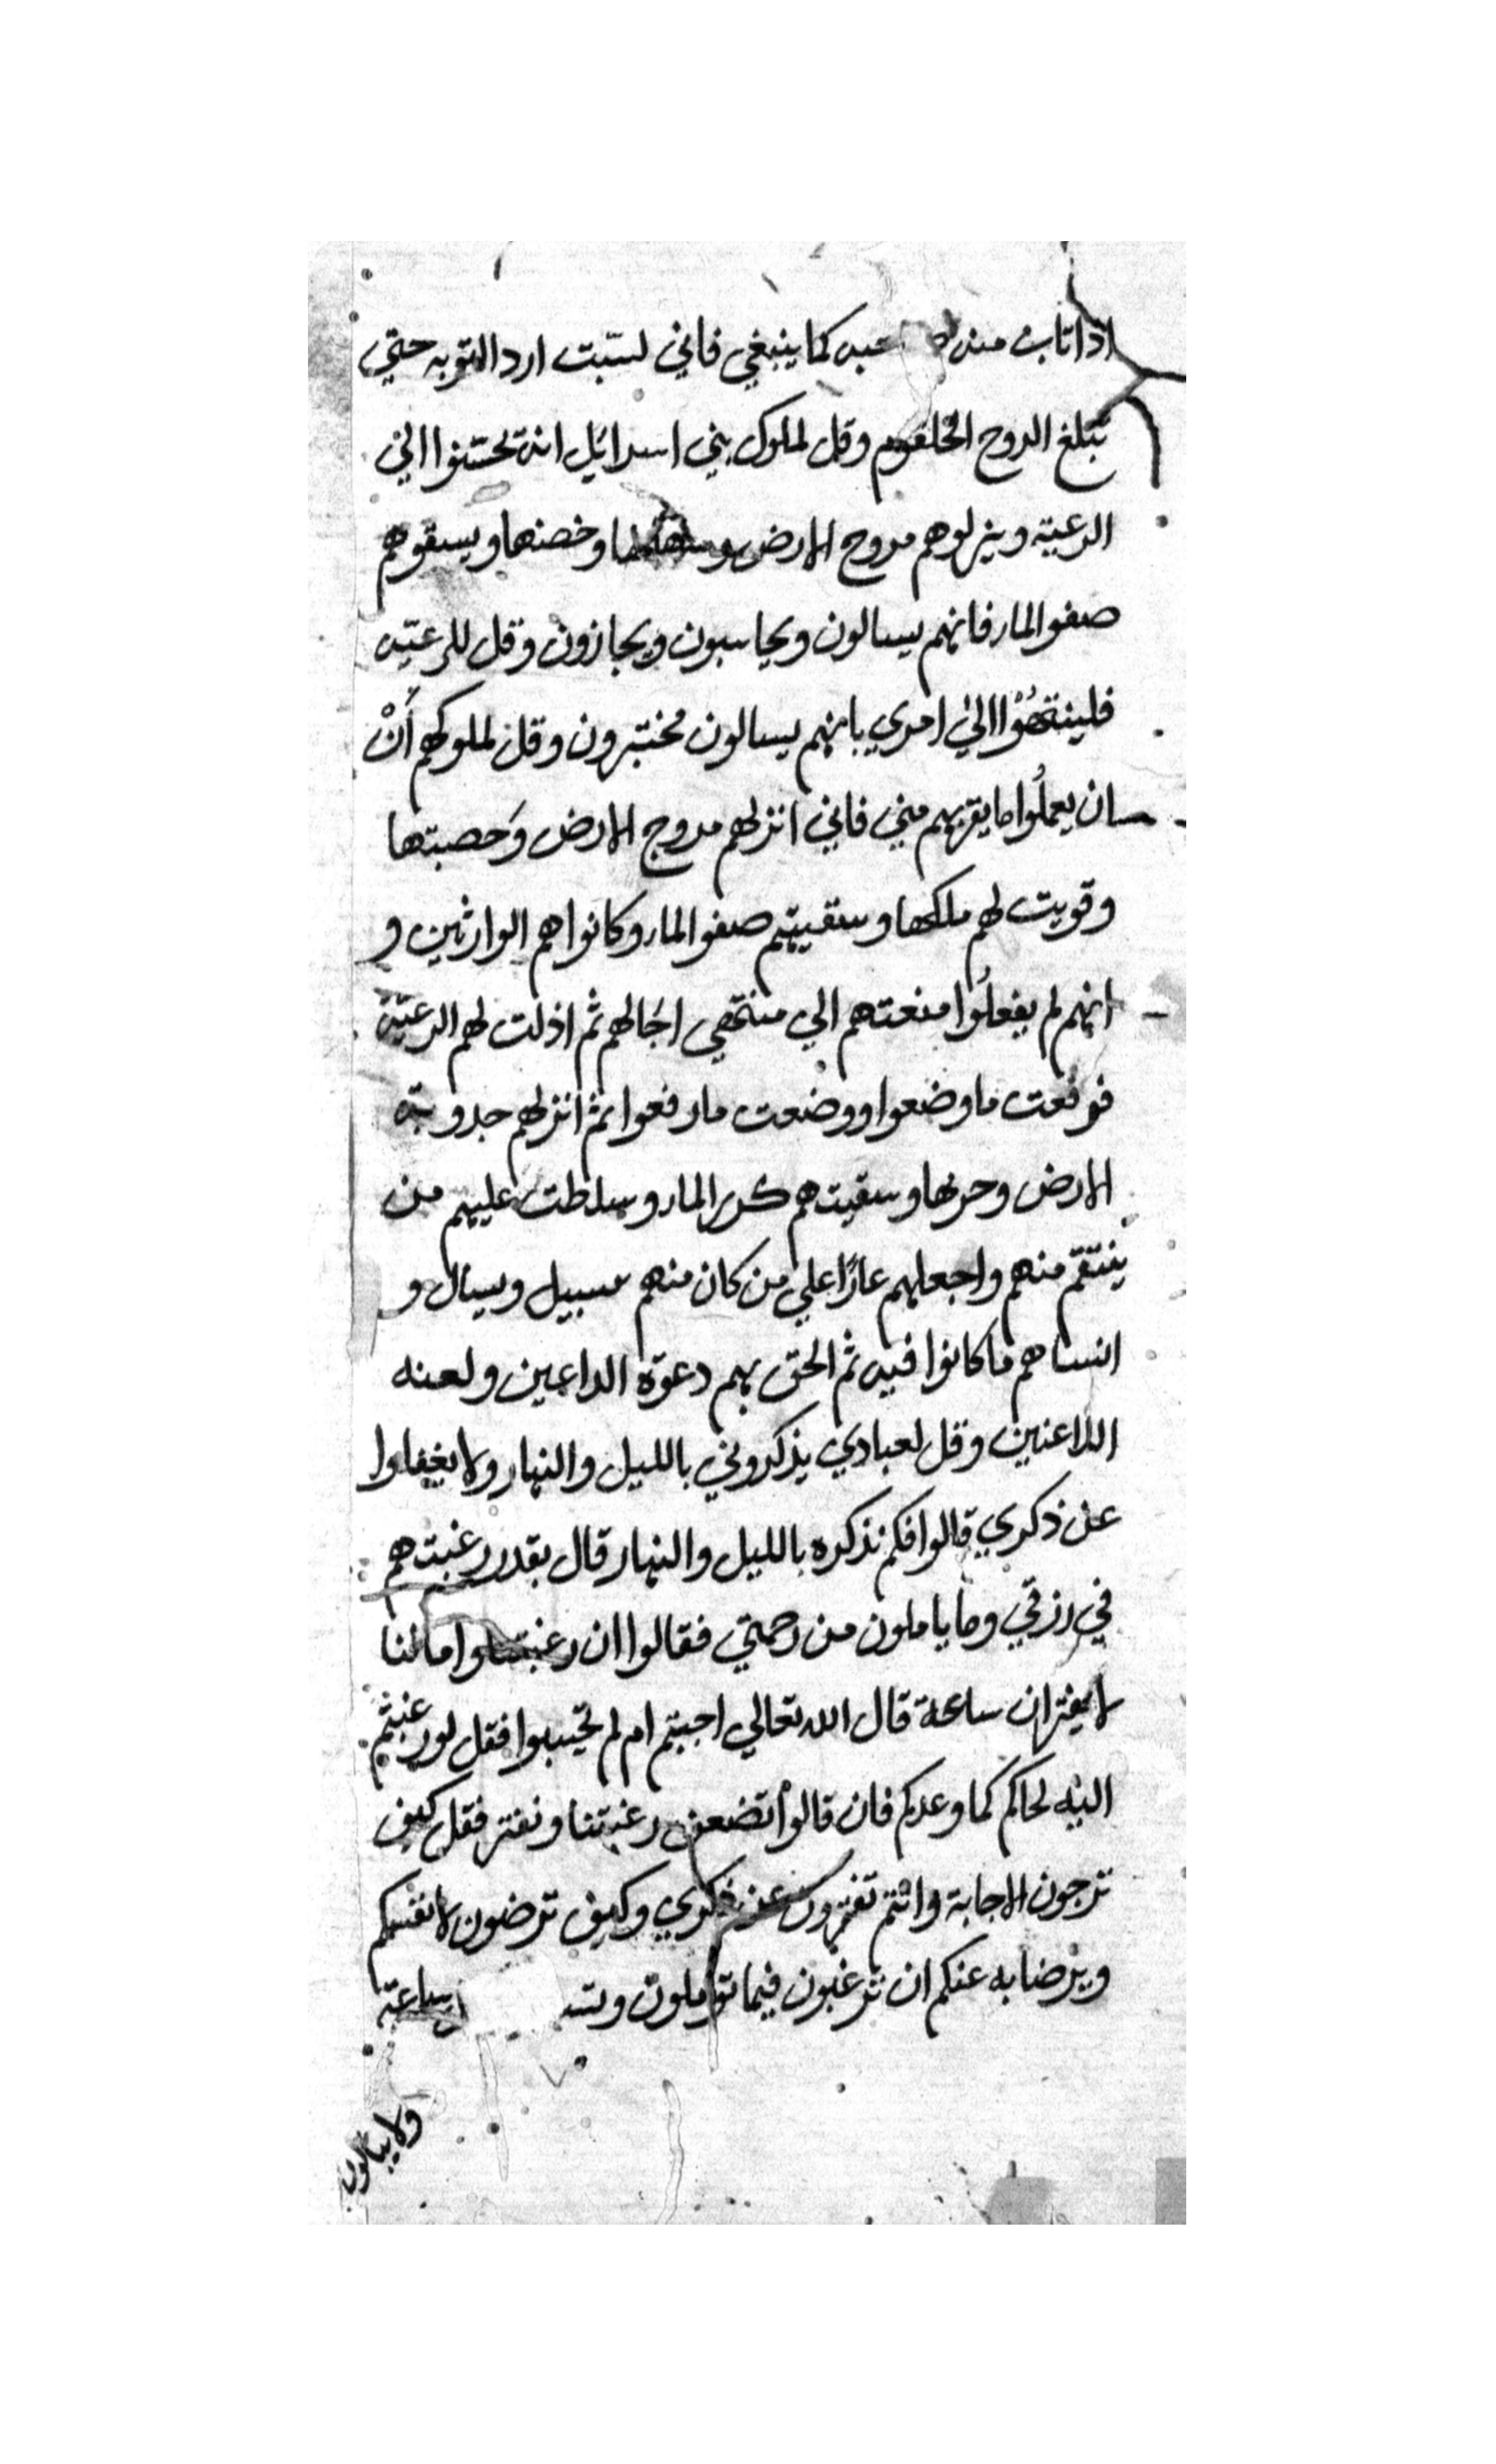 اذا تاب منه كما ينبغي فاني لست ارد التوبه حتي
تبلغ الروح الحلقوم وقل لملوك بني اسرايل ان تحسنوا الي
الرعية وينزلوهم مروج الارض وخصبها ويسقوهم
صفو الماء فانهم يسالون ويحاسبون ويجازون وقل للرعيه
فلينتهُوْا الي امري بانهم يسالون مختبرون وقل لملوكهم أَنْ
ان يعملُوا ما يقربهم مني فاني انزلهم مروج الارض وخصبتها
وقويت لهم ملكها وسقيتهم صفو الماء وكانوا هم الوارثين و
انهم لم يفعلُوا منعتهم الي منتهي اجالهم ثم اذلت لهم الرعيّة
فرفعت ما وضعوا ووضعت ما رفعوا ثم انزلهم جدوبة
الارض وحزنها وسقيتهم كدر الماء وسلطت عليهم من
ينتقم منهم واجعلهم عارًا علي من كان منهم بسبيل ويسال و
انساهم ما كانوا فيه ثم الحق بهم دعوة الداعين ولعنه
اللاعنين وقل لعبادي يذكروني بالليل والنهار ولا يغفلوا
عن ذكري قالوا فكم نذكره بالليل والنهار قال بقدر رغبتهم
في رزقي وما ياملون من رحمتي فقالوا ان رغبتنا وامالنا
لا يفتران ساعة قال الله تعالي اجبتم ام لم تجيبوا فقل لو رغبتم
اليه لجاكم كما وعدكم فان قالوا تضعف رغبتنا ونفتر فقل كيف
ترجون الاجابة وانتم تفترون عن ذكري وكيف ترضون لانفسكم
ويرضا به عنكم ان ترغبون فيما تؤملون ساعة
ولا يبالون